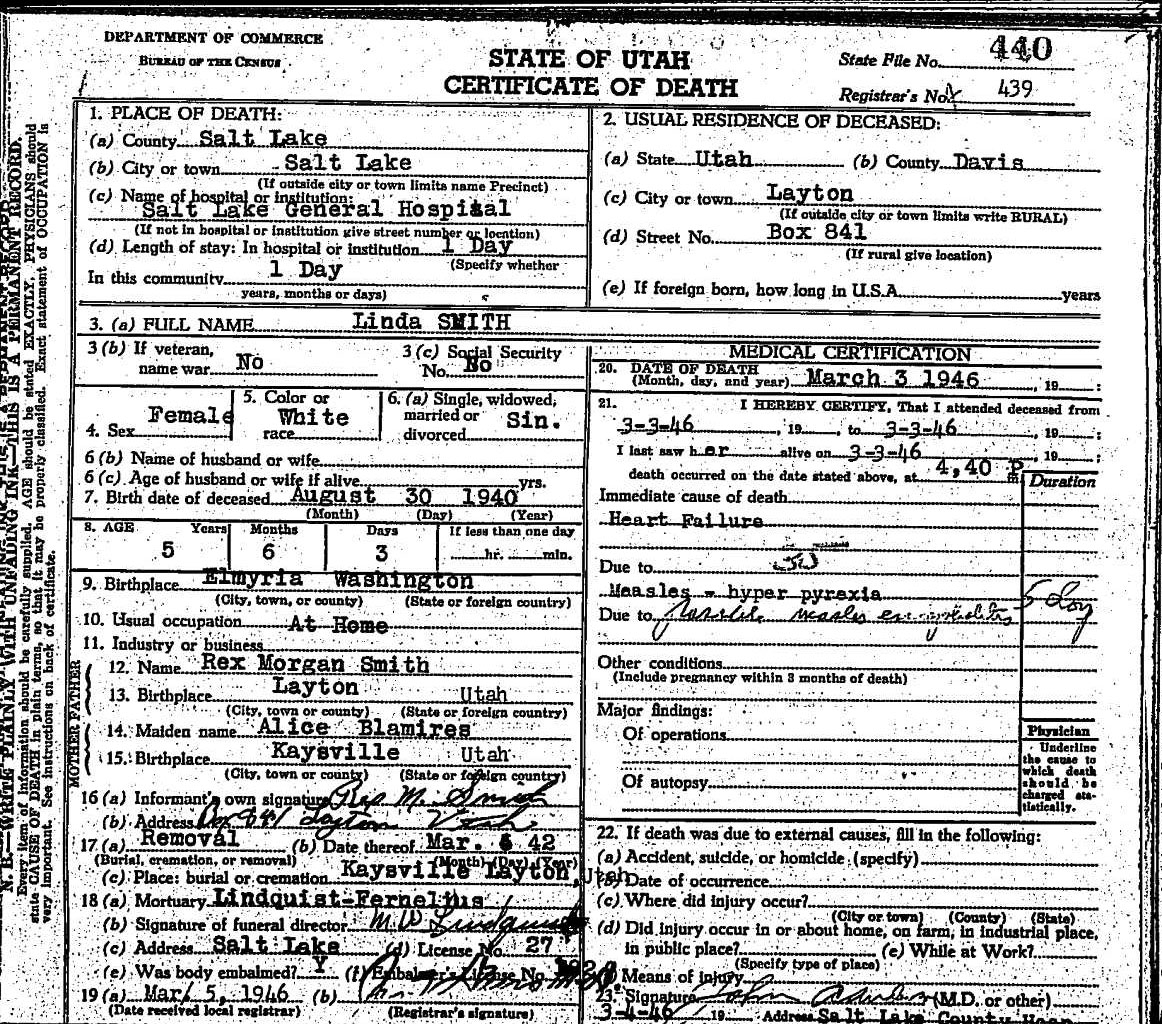 DEPARTMENT OF COMMERCE
BUREAU OF THE CENSUS
STATE OF UTAH
CERTIFICATE OF DEATH
State File No. 440
Registrar's No. 439
1. PLACE OF DEATH:
(a) County Salt Lake
(b) City or town Salt Lake
(If outside city or town limits name Precinct)
(c) Name of hospital or institution:
Salt Lake General Hospital
(If not in hospital or institution give street number or location)
(d) Length of stay: In hospital or institution 1 Day
(Specify whether
In this community 1 Day
years, months or days)
2. USUAL RESIDENCE OF DECEASED:
(a) State Utah (b) County Davis
(c) City or town Layton
(If outside city or town limits write RURAL)
(d) Street No. Box 841
(If rural give location)
(e) If foreign born, how long in U.S.A. years
3. (a) FULL NAME Linda SMITH
3 (b) If veteran, name war No
3 (c) Social Security No. No
4. Sex Female
5. Color or race White
6. (a) Single, widowed, married or divorced Sin.
6 (b) Name of husband or wife
6 (c) Age of husband or wife if alive yrs.
7. Birth date of deceased August 30 1940
(Month) (Day) (Year)
8. AGE Years Months Days If less than one day
5 6 3 hr. min.
9. Birthplace Elmyria Washington
(City, town, or county) (State or foreign country)
10. Usual occupation At Home
11. Industry or business
FATHER
12. Name Rex Morgan Smith
13. Birthplace Layton Utah
(City, town or county) (State or foreign country)
MOTHER
14. Maiden name Alice Blamires
15. Birthplace Kaysville Utah
(City, town or county) (State or foreign country)
16 (a) Informant's own signature Rex M. Smith
(b) Address Box 841 Layton Utah
17 (a) Removal (b) Date thereof Mar. 42
(Burial, cremation, or removal) (Month) (Day) (Year)
(c) Place: burial or cremation Kaysville Layton, Utah
18 (a) Mortuary Lindquist-Fernelius
(b) Signature of funeral director
(c) Address Salt Lake (d) License No. 27
(e) Was body embalmed? Y (f) Embalmer's License No.
19 (a) Mar. 5, 1946 (b)
(Date received local registrar) (Registrar's signature)
MEDICAL CERTIFICATION
20. DATE OF DEATH
(Month, day, and year) March 3 1946, 19 :
21. I HEREBY CERTIFY, That I attended deceased from
3-3-46, 19 , to 3-3-46, 19 ;
I last saw her alive on 3-3-46, 19 ;
death occurred on the date stated above, at 4,40 P m
Duration
Immediate cause of death
Heart Failure
Due to
Measles - hyper pyrexia
Due to possible measles encephalitis 5 Day
Other conditions
(Include pregnancy within 3 months of death)
Major findings:
Of operations
Of autopsy
Physician
Underline
the cause to
which death
should be
charged sta-
tistically.
22. If death was due to external causes, fill in the following:
(a) Accident, suicide, or homicide (specify)
(b) Date of occurrence
(c) Where did injury occur?
(City or town) (County) (State)
(d) Did injury occur in or about home, on farm, in industrial place,
in public place? (e) While at Work?
(Specify type of place)
Means of injury
23. Signature John (M.D. or other)
3-4-46 19 Address Salt Lake County Hosp
N. B.—WRITE PLAINLY, WITH UNFADING INK—THIS IS A PERMANENT RECORD.
Every item of information should be carefully supplied. AGE should be stated EXACTLY. PHYSICIANS should
state CAUSE OF DEATH in plain terms, so that it may be properly classified. Exact statement of OCCUPATION is
very important. See instructions on back of certificate.